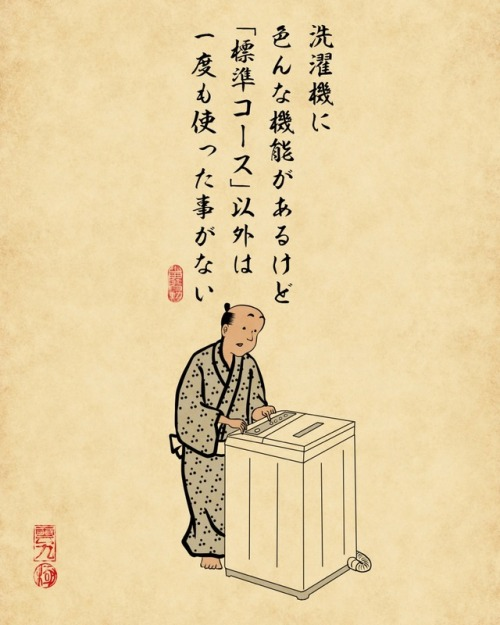 洗濯機に
色んな機能があるけど
「標準コース」以外は
一度も使った事がない